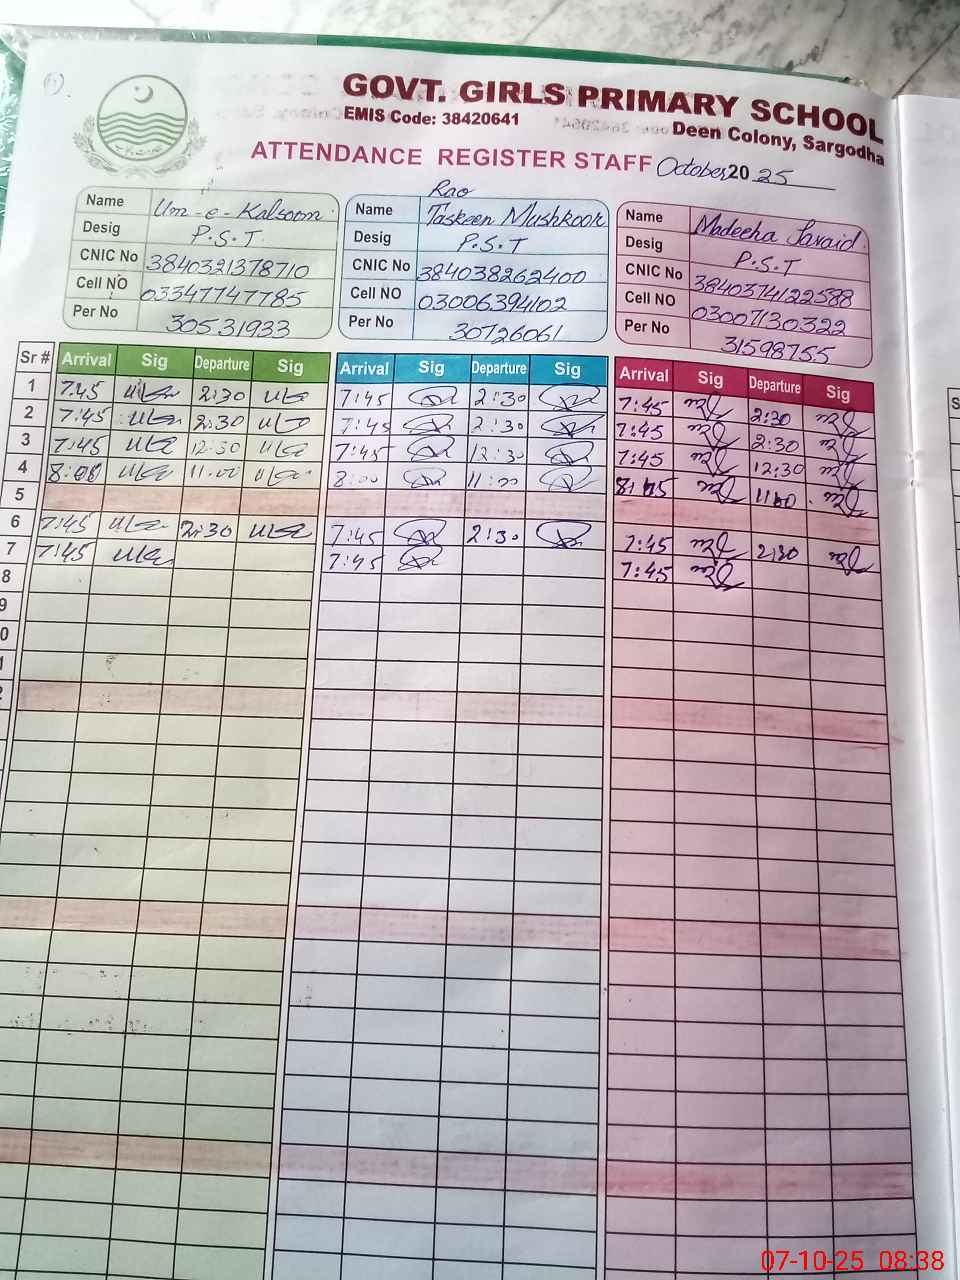 GOVT. GIRLS PRIMARY SCHOOL
EMIS Code: 38420641
Deen Colony, Sargodha
ATTENDANCE REGISTER STAFF October 2025
Name Um-e-Kalsoom
Desig P.S.T.
CNIC No 3840321378710
Cell NO 03347747785
Per No 30531933
Rao
Name Taskeen Mushkoor
Desig P.S.T
CNIC No 384038262400
Cell NO 03006394102
Per No 30726061
Name Madeeha Javaid
Desig P.S.T
CNIC No 3840374122588
Cell NO 03007130322
Per No 31598755
Sr # Arrival Sig Departure Sig Arrival Sig Departure Sig Arrival Sig Departure Sig
1 7:45 2:30 7:45 2:30 7:45 2:30
2 7:45 2:30 7:45 2:30 7:45 2:30
3 7:45 12:30 7:45 12:30 7:45 12:30
4 8:00 11:00 8:00 11:00
5
6 7:45 2:30 7:45 2:30 7:45 2:30
7 7:45 7:45 7:45
8
9
0
1
2
07-10-25 08:38